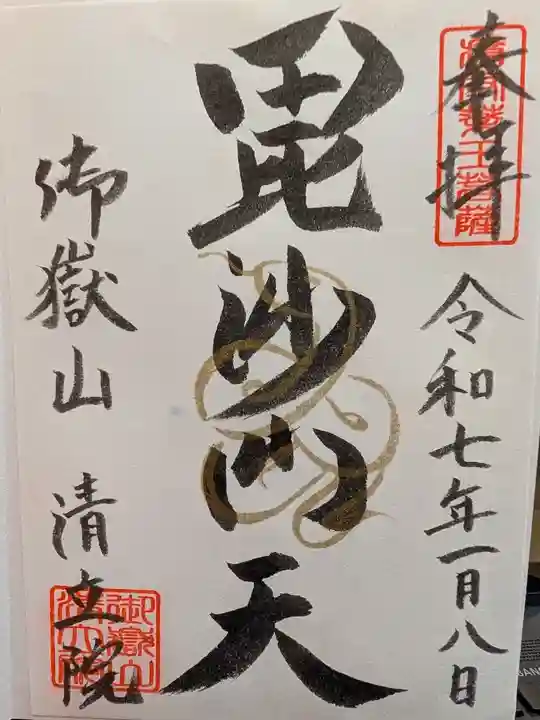 奉拝
令和七年一月八日
毘沙門天
御嶽山 清立院
御嶽山